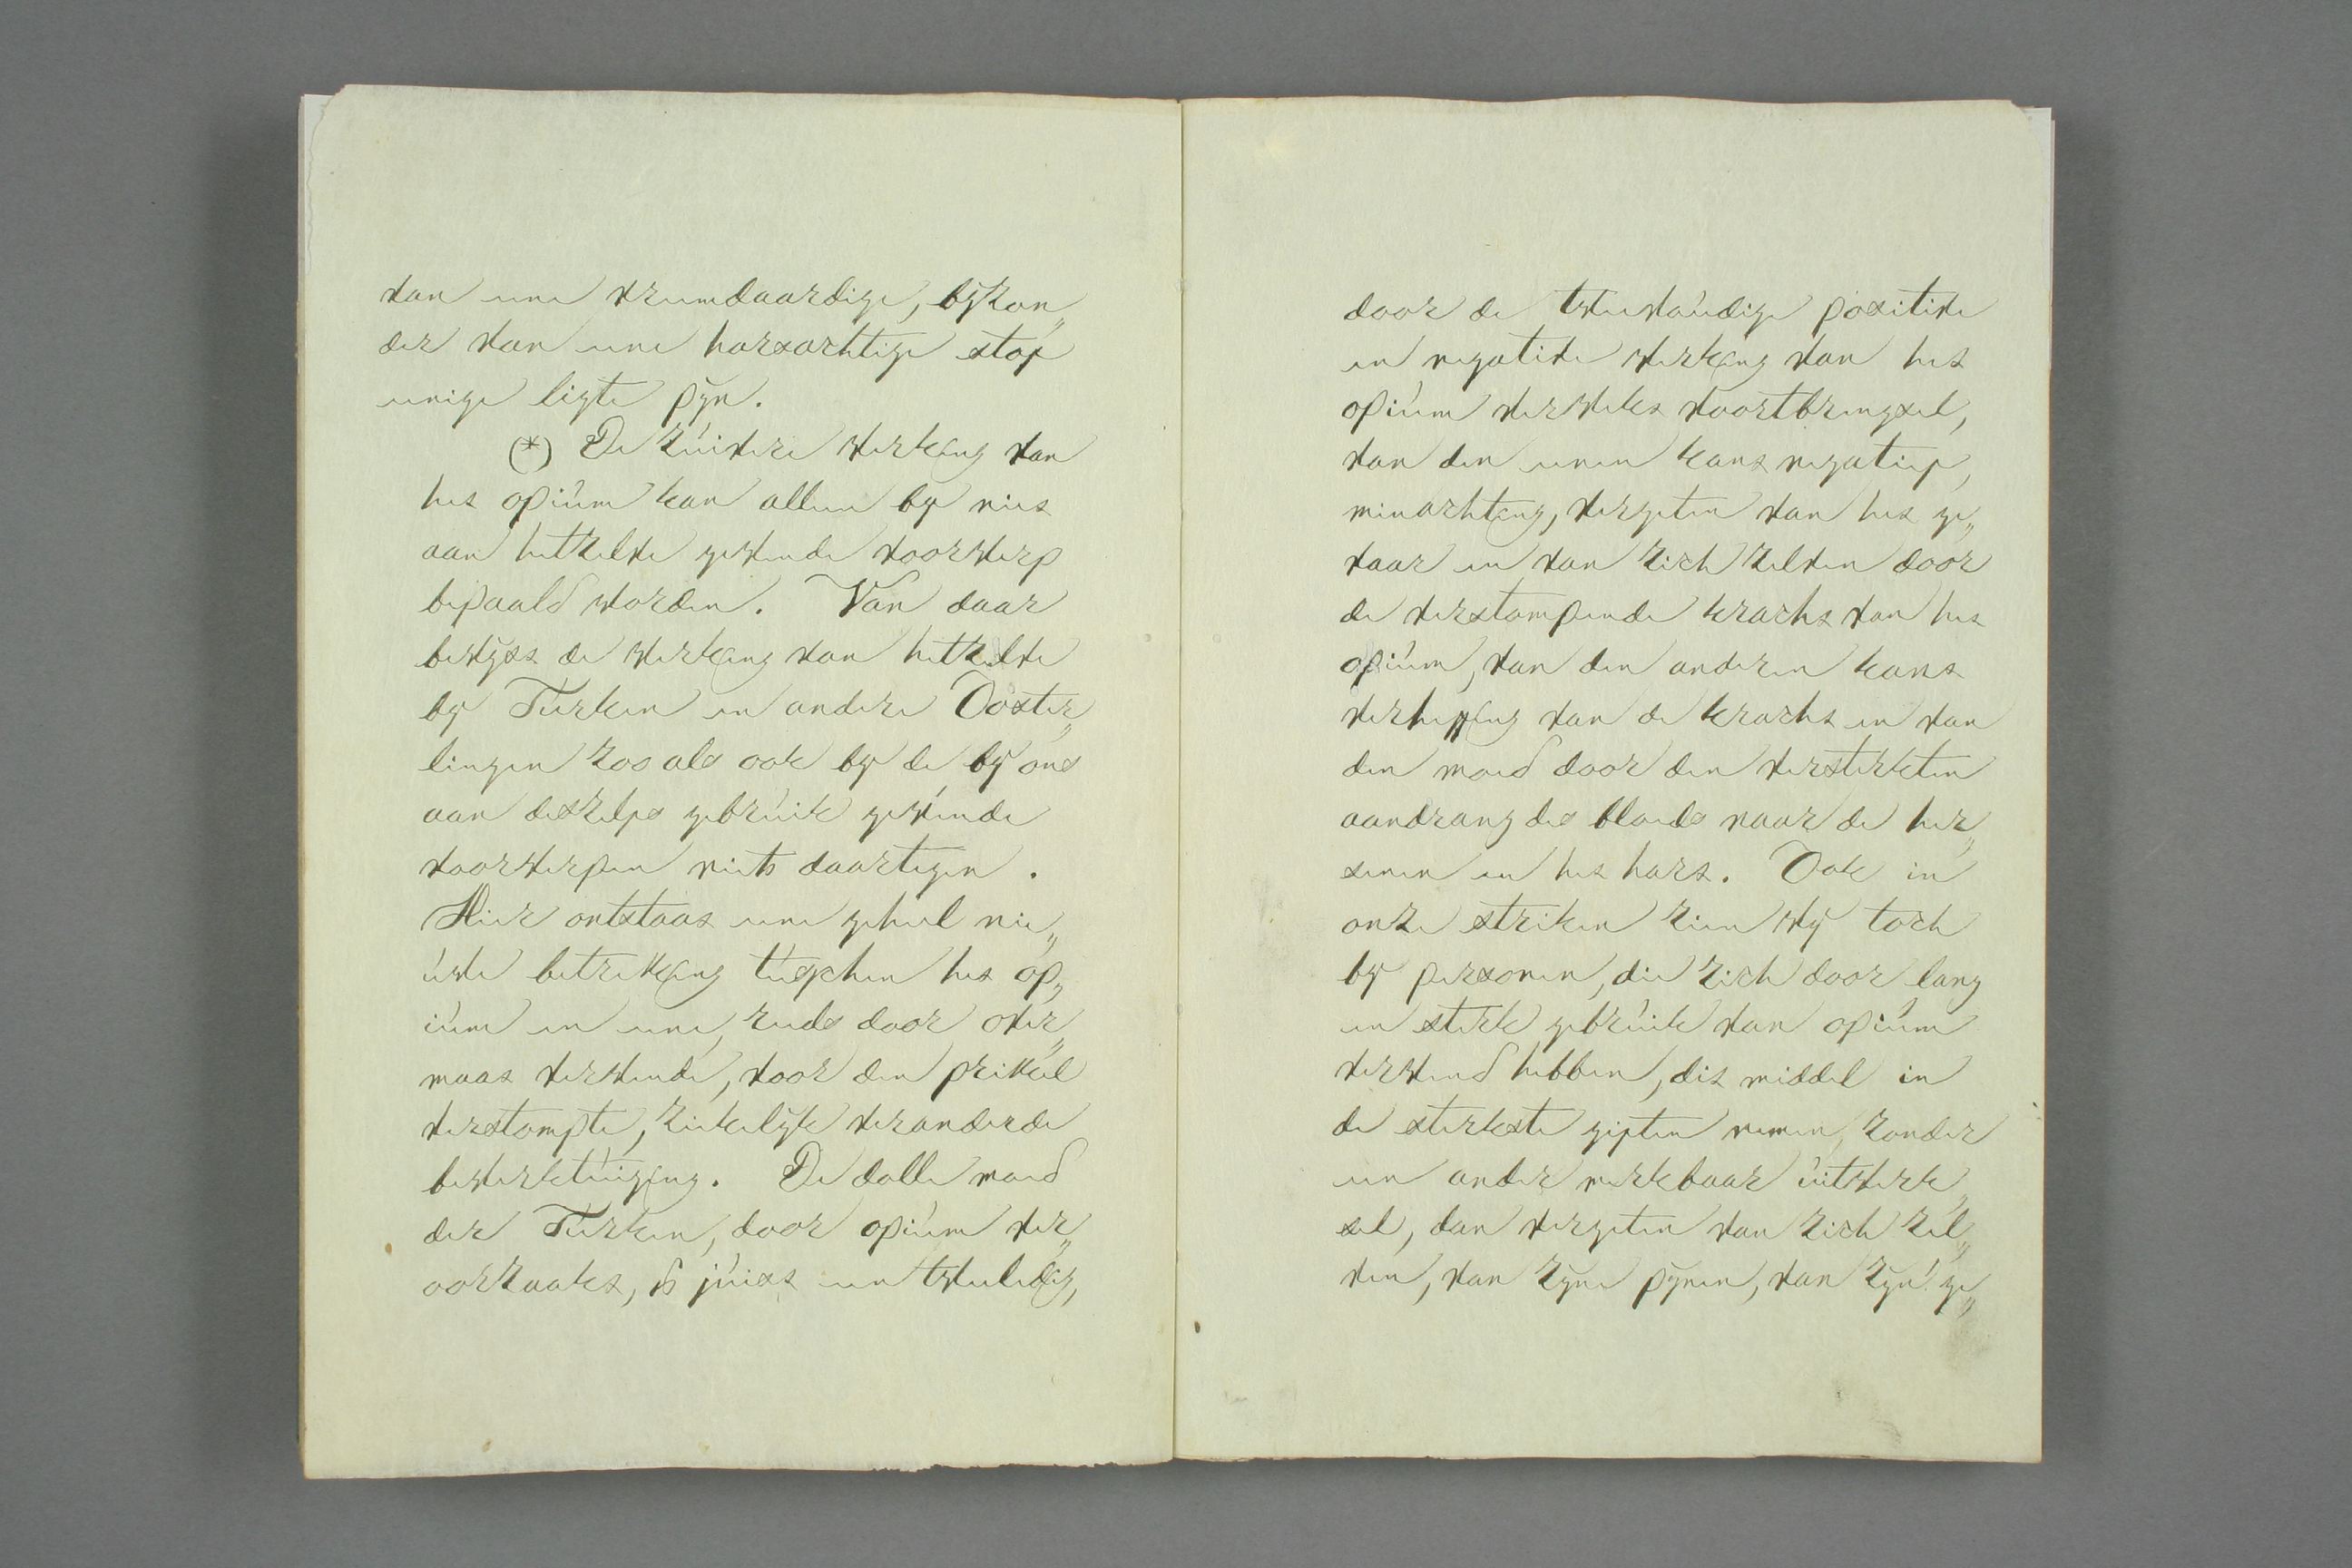 van eene vreemdaardige, byzon„
der van eene harsachtige stof
eenige ligte pyn.
(*) De zuivere werking van
het opium kan alleen by niet
aan hetzelve gewende voorwerp
bepaald worden. Van daar
bewyst de werking van hetzelve
by Turken en andere Ooster„
lingen zoo als ook by de by ons
aan deszelfs gebruik gewende
voorwerpen niets daartegen.
Hier ontstaat eene geheel nie„
uwe betrekking tusschen het op„
ium en eene, reeds door over„
maat verwende, voor den prikkel
verstompte, ziekelyk veranderde
bewerktuiging. De dolle moed
der Turken, door opium ver„
oorzaakt, is juist een tweeledig,
door de tweevoudige positive
en negative werking van het
opium verwekt voortbrengsel,
van den eenen kant negatief,
minachting, vergeten van het ge„
vaar en van zich zelven door
de verstompende kracht van het
opium, van den anderen kant
verheffing van de kracht en van
den moed door den versterkten
aandrang des bloeds naar de her„
senen en het hart. Ook in
onze streken zien wy toch
by personen, die zich door lang
en sterk gebruik van opium
verwend hebben, dit middel in
de sterkste giften nemen, zonder
een ander merkbaar uitwerk„
sel, dan vergeten van zich zel„
ven, van zyne pynen, van zyn ge„